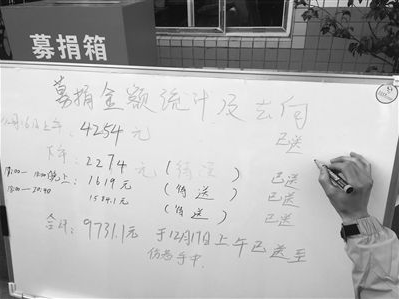 募捐箱
募捐金额统计及去向
12月16日上午: 4254元 已送
下午: 2274元 (待送) 已送
18:00—晚上: 1619元 (待送) 已送
18:00—20:40 1584.1元 (待送) 已送
合计: 9731.1元 于12月17日上午已送至
伤者手中.